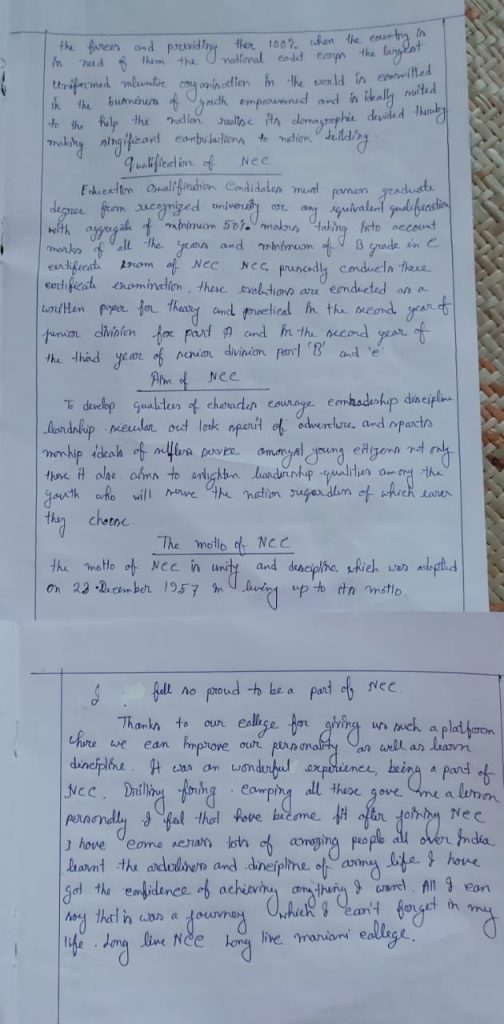 the forces and providing ther 100% when the country is
in need of them the national cadet corps the largest
uniformed volunter organisation in the world is committed
in the busmeness of youth empowerment and is ideally suited
to the help the nation realise its demographic devided thereby
making singificant contributions to nation building.
Qualification of NCC
Education Qualification Candidates must posses graduate
degree from recognized university or any equivalent qualification
with aggregate of minimum 50% makrs taking into account
marks of all the years and minimum of B grade in C
certificate exam of NCC. NCC, presently conducts three
certificate examination, these evalutions are conducted as a
written paper for theory and practical in the second year of
junior division for part A and in the second year of
the third year of senior division part 'B' and 'c'
Aim of NCC
To develop qualities of character courage comradeship discipline
leardship secular out look sperit of adventure and sports
monship ideals of selfless service amongst young citizens not only
these it also aims to enlighten leardership qualities among the
youth who will serve the nation regardless of which career
they choose.
The motto of NCC
the motto of NCC is unity and descipline which was adopted
on 23 December 1957 in living up to its motto.
I full so proud to be a part of NCC.
Thanks to our callege for giving us such a platform
where we can improve our personality as well as learn
discipline. It was an wonderful experience, being a part of
NCC. Drilling firing camping all these gave me a lesson
personally I feel that have become fit after joining NCC
I have come across lots of amazing people all over India
learnt the orderliness and discipline of army life I have
got the confidence of achieving anything I want. All I can
say that is was a journey which I can't forget in my
life. Long live NCC. Long live mariani callege.